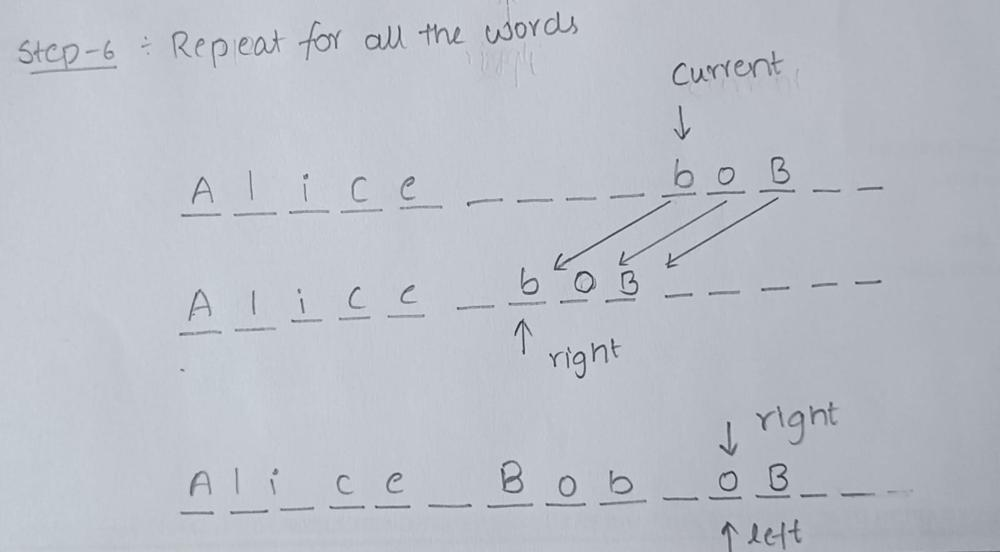 Step-6 ÷ Repeat for all the words
Current
↓
A l i c e _ _ _ _ b o B _ _
A l i c e _ b o B _ _ _ _ _
↑ right
↓ right
A l i c e _ B o b _ o B _ _
↑ left